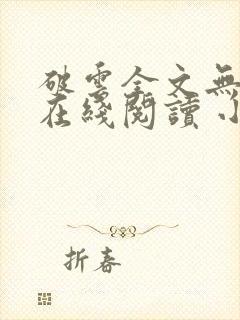 破雲全文無
在綫閱讀 小
折春